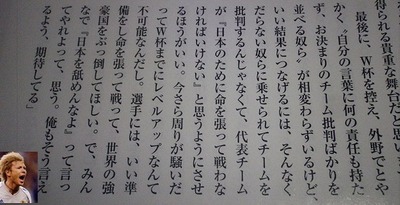 得られる貴重な舞台だと思いま
最後に、W杯を控え、外野でとや
かく、〝自分の言葉に何の責任も持た
ず、お決まりのチーム批判ばかりを
並べる奴ら〟が相変わらずいるけど、
いい結果につなげるには、そんなく
だらない奴らに乗せられてチームを
批判するんじゃなくて、代表チーム
が『日本のために命を張って戦わな
ければいけない』と思うようにさせ
るほうがいい。今さら周りが騒いだ
ってW杯までにレベルアップなんて
不可能なんだし。選手には、いい準
備をし命を張って戦って、世界の強
豪国をぶっ倒してほしい。で、みん
なで『日本を舐めんなよ』って言っ
てやれよって、思う。俺もそう言え
るよう、期待してる」